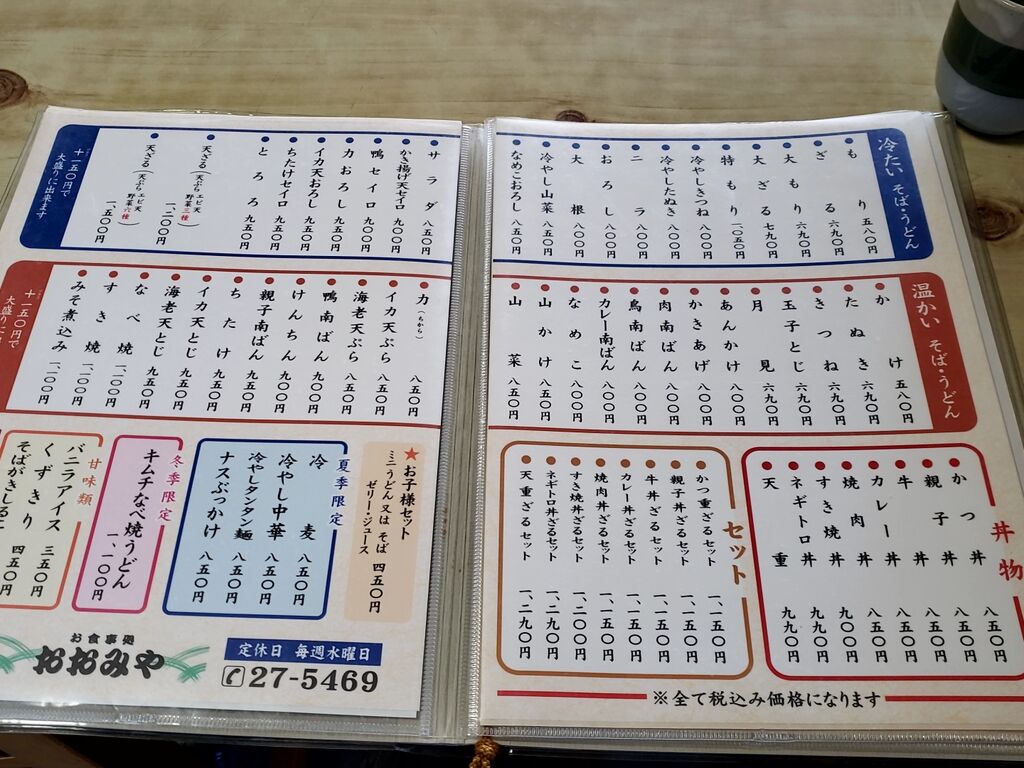 冷たい そば・うどん
もり 五八〇円
ざる 六九〇円
大もり 六九〇円
大ざる 七九〇円
特もり 一〇五〇円
冷やしきつね 八〇〇円
冷やしたぬき 八〇〇円
ニラ 八〇〇円
おろし 八〇〇円
大根 八〇〇円
冷やし山菜 八五〇円
なめこおろし 八五〇円
サラダ 八五〇円
かき揚げ天セイロ 九〇〇円
鴨セイロ 九〇〇円
力おろし 九五〇円
イカ天おろし 九五〇円
ちたけセイロ 九五〇円
とろろ 九五〇円
天ざる(天ぷら エビ天 野菜三種) 一、二〇〇円
天ざる(天ぷら エビ天 野菜六種) 一、五〇〇円
十一五〇円で
大盛りに出来ます
温かい そば・うどん
かけ 五八〇円
たぬき 六九〇円
きつね 六九〇円
玉子とじ 六九〇円
月見 六九〇円
あんかけ 八〇〇円
かきあげ 八〇〇円
肉南ばん 八〇〇円
鳥南ばん 八〇〇円
カレー南ばん 八〇〇円
なめこ 八〇〇円
山かけ 八五〇円
山菜 八五〇円
力(ちから) 八五〇円
イカ天ぷら 八五〇円
海老天ぷら 八五〇円
鴨南ばん 九五〇円
けんちん 九〇〇円
親子南ばん 九五〇円
ちたけ 九五〇円
イカ天とじ 九五〇円
海老天とじ 九五〇円
なべ焼 一、一〇〇円
すき焼 一、一〇〇円
みそ煮込み 一、一〇〇円
十一五〇円で
大盛りに
丼物
かつ丼 八五〇円
親子丼 八五〇円
牛丼 八五〇円
カレー丼 八五〇円
焼肉丼 九〇〇円
すき焼丼 九九〇円
ネギトロ丼 九九〇円
天重 九九〇円
セット
かつ重ざるセット 一、一五〇円
親子丼ざるセット 一、一五〇円
牛丼ざるセット 一、一五〇円
カレー丼ざるセット 一、一五〇円
焼肉丼ざるセット 一、二〇〇円
すき焼丼ざるセット 一、二九〇円
ネギトロ丼ざるセット 一、二九〇円
天重ざるセット 一、二九〇円
※全て税込み価格になります
★お子様セット
ミニうどん又はそば 四五〇円
ゼリー・ジュース
夏季限定
冷麦 八五〇円
冷やし中華 八五〇円
冷やしタンタン麺 八五〇円
ナスぶっかけ 八五〇円
冬季限定
キムチなべ焼うどん 一、一〇〇円
甘味類
バニラアイス 三五〇円
くずきり 四五〇円
そばがきしるこ
お食事処
おおみや
定休日 毎週水曜日
27-5469